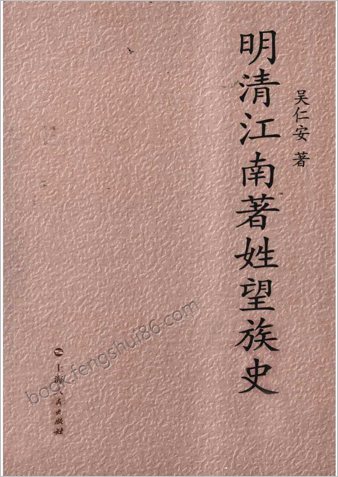 明清江南著姓望族史
吴仁安 著
上海人民出版社
book.fengshui86.com